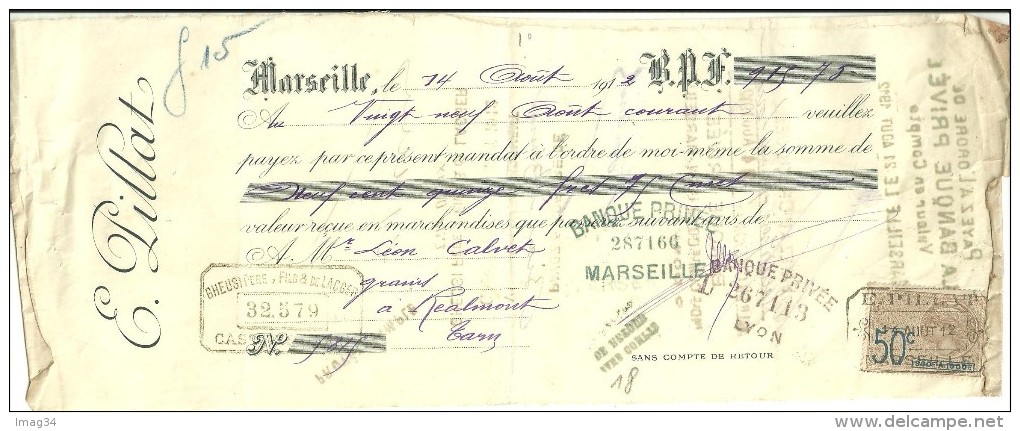 f. 15
1º
E. Pillat
Marseille, le 14 Août 1912 B.P.F. 915 75
Au Vingt neuf Août courant veuillez
payez par ce présent mandat à l'ordre de moi-même la somme de
Neuf cent quinze fcs et 75 Cent
valeur reçue en marchandises que passerez suivant avis de
A Mr Léon Calvet
grains
à Réalmont
Tarn
Nº
BANQUE PRIVÉE
287166
MARSEILLE
BANQUE PRIVÉE
L 267113
LYON
CHEUSI PÈRE, FILS & DE LACGER
32.579
CAS
SANS COMPTE DE RETOUR
18
PAYEZ A L'ORDRE DE
LA BANQUE PRIVÉE
Valeur en Compte
MARSEILLE LE 21 AOUT 1912
E. PILLAT
14 AOUT 12
50c
Imag34
www.delcampe.net